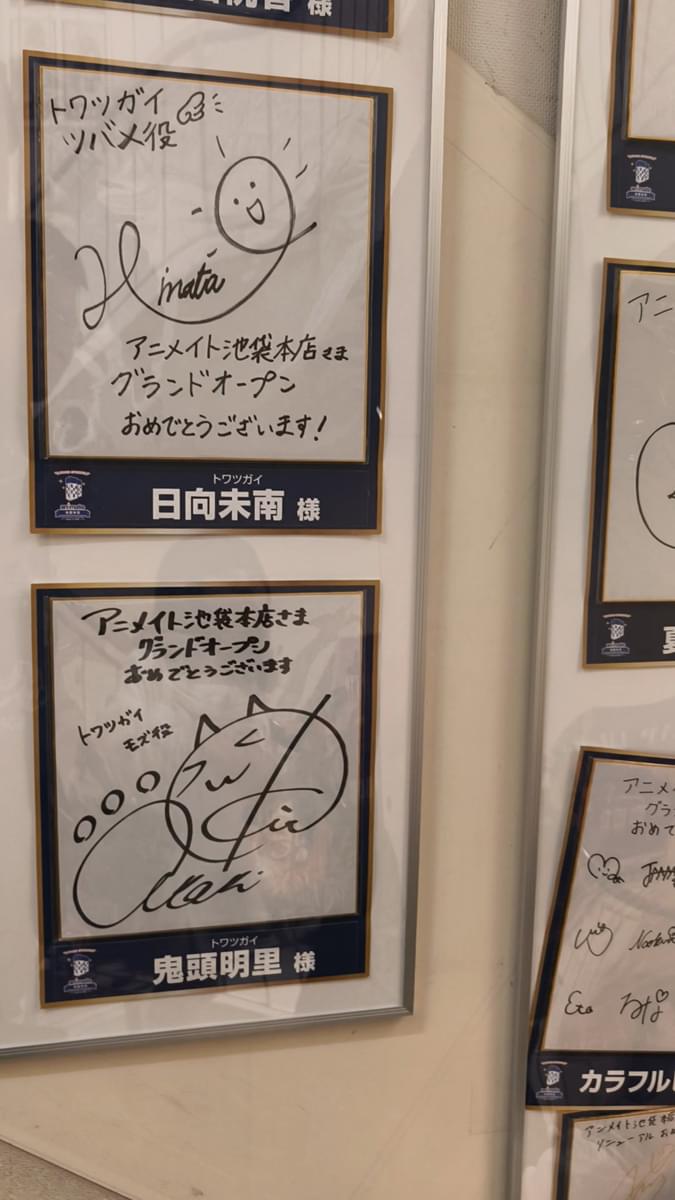 様
トワツガイ
ツバメ役
Hinata
アニメイト池袋本店さま
グランドオープン
おめでとうございます!
トワツガイ
日向未南 様
アニメイト池袋本店さま
グランドオープン
おめでとうございます
トワツガイ
モズ役
トワツガイ
鬼頭明里 様
アニ
アニメ
グラ
おめで
るな
カラフル
アニメイト池袋本店
リニューアル おめ